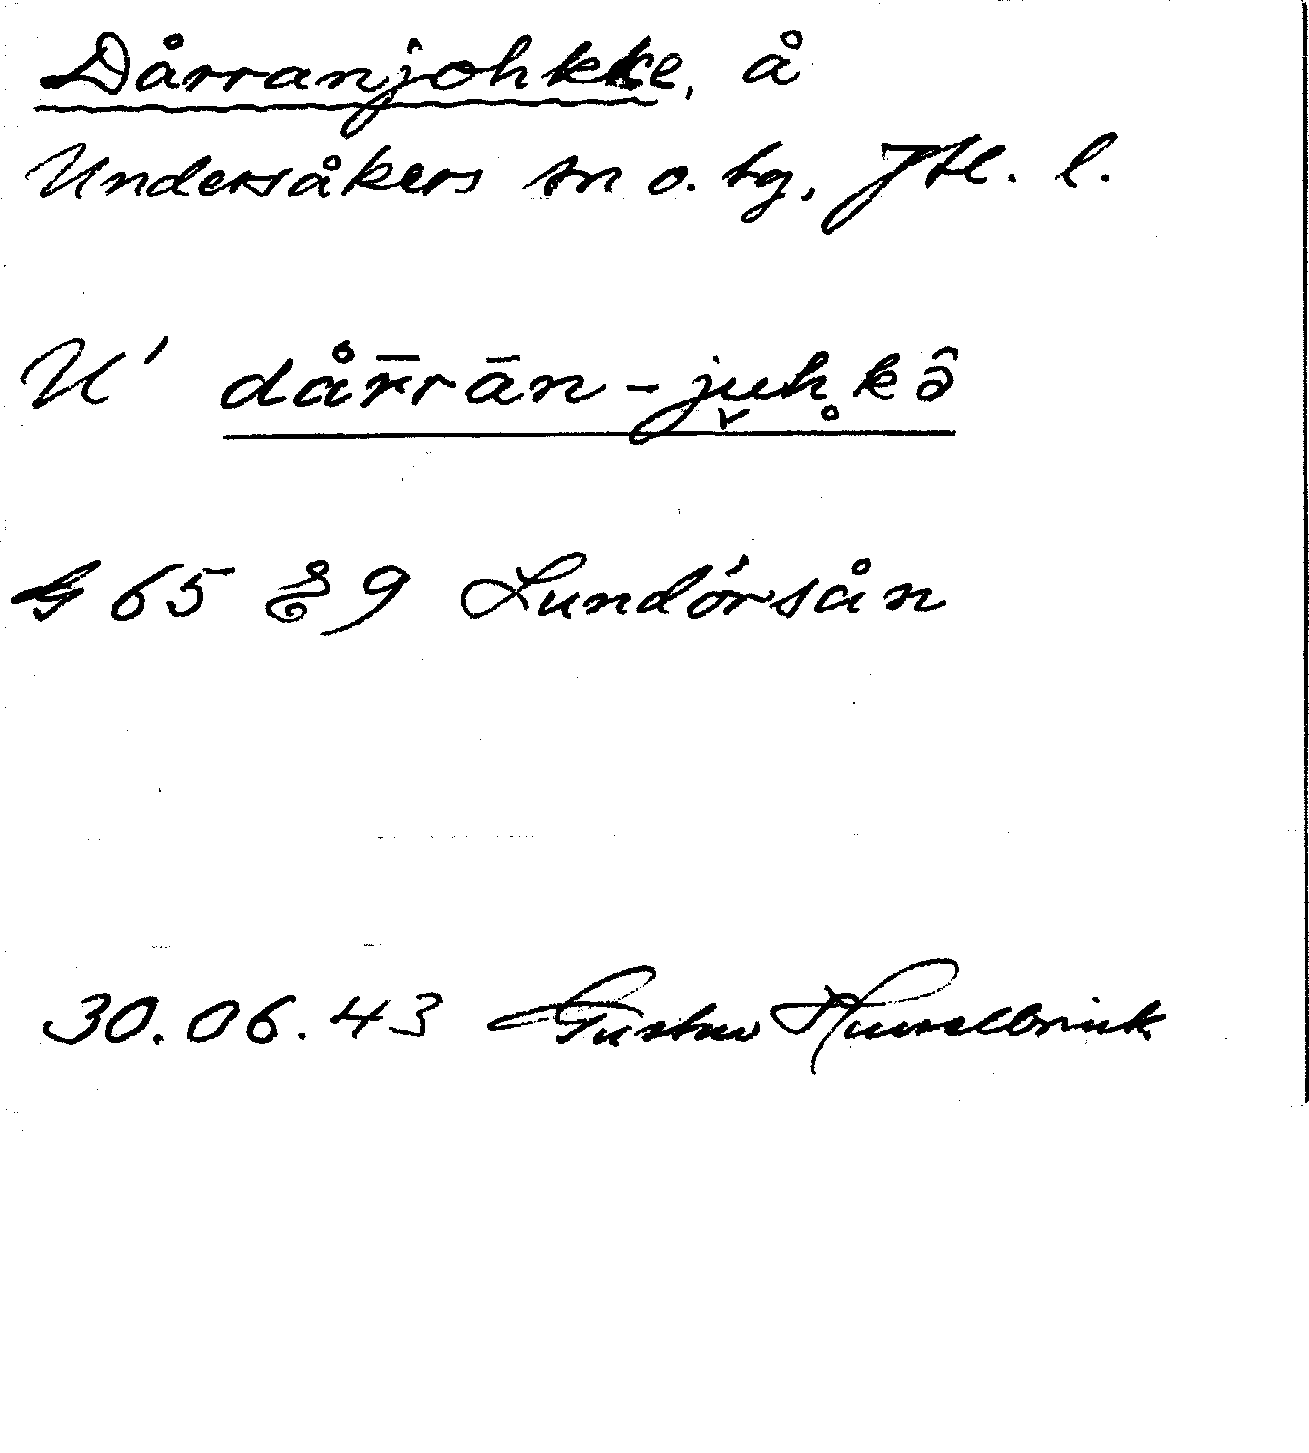 Dårranjohkke, å
Undersåkers sn o. tg, Jtl. l.
U' då̄rrān-juhkə̂
G 65 E 9 Lundörsån
30.06.43 Gustav Hasselbrink